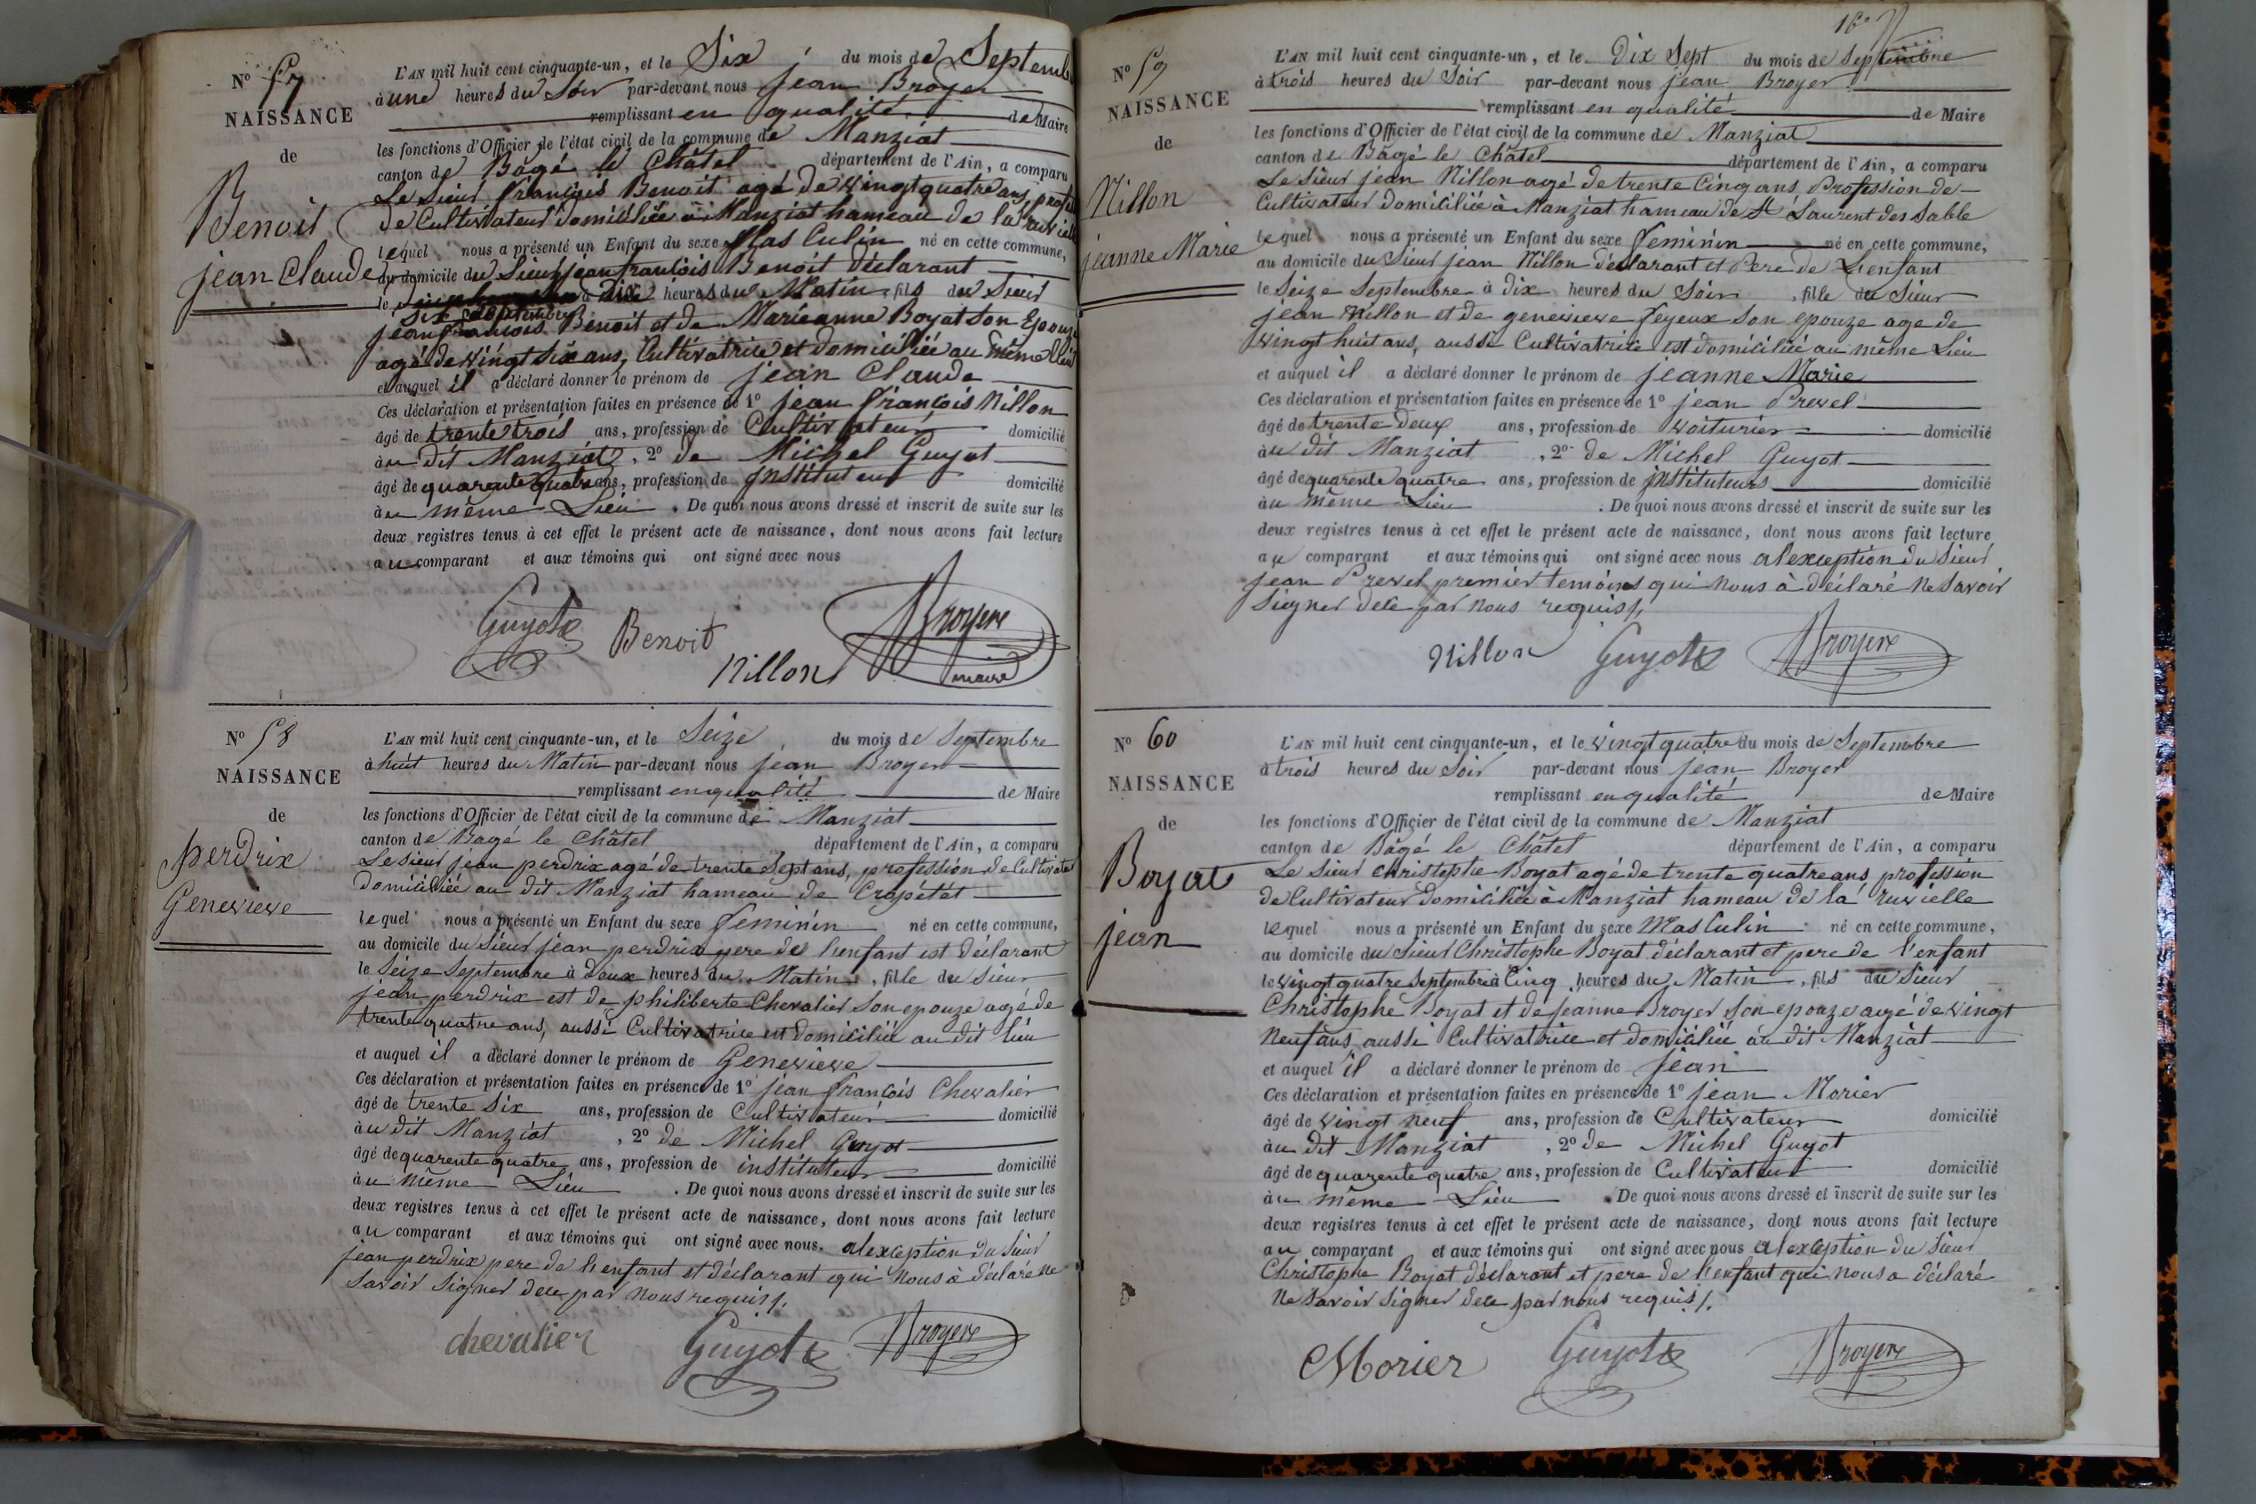 N° 57
NAISSANCE
de
Benoit
jean Claude
L'AN mil huit cent cinquante-un, et le Six du mois de Septemb
à une heures du Soir par-devant nous jean Broyer
remplissant en qualité de Maire
les fonctions d'Officier de l'état civil de la commune de Manziat
canton de Bâgé le Châtel département de l'Ain, a comparu
Le Sieur françois Benoit agé de vingt quatre ans
de Cultivateur domiciliée à Manziat hameau de la
lequel nous a présenté un Enfant du sexe Mas Culin né en cette commune,
au domicile du Sieur jean françois Benoit déclarant
le à Dix heures du Matin, fils du Sieur
Six Septembre
jean françois Benoit et de Marieanne Boyat Son Epouze
agé de vingt Six ans, Cultivatrice et domiciliée au même Lieu
et auquel il a déclaré donner le prénom de jean Claude
Ces déclaration et présentation faites en présence de 1° jean françois Nillon
âgé de trente trois ans, profession de Cultivateur domicilié
à u dit Manziat, 2° de Michel Guyot
âgé de quarente quatre ans, profession de instituteur domicilié
à u même Lieu. De quoi nous avons dressé et inscrit de suite sur les
deux registres tenus à cet effet le présent acte de naissance, dont nous avons fait lecture
au comparant et aux témoins qui ont signé avec nous
Guyot Benoit Broyer
Nillon maire
N° 58
NAISSANCE
de
perdrix
Genevieve
L'AN mil huit cent cinquante-un, et le Seize du mois de Septembre
à huit heures du Matin par-devant nous jean Broyer
remplissant en qualité de Maire
les fonctions d'Officier de l'état civil de la commune de Manziat
canton de Bagé le Châtel département de l'Ain, a comparu
Le sieur jean perdrix agé de trente Sept ans, profession de Cultivate
domiciliée au dit Manziat hameau de Cropétet
lequel nous a présenté un Enfant du sexe feminin né en cette commune,
au domicile du Sieur jean perdrix pere de l'enfant est déclarant
le Seize Septembre à deux heures du Matin, fille du Sieur
jean perdrix est de philiberte Chevalier Son epouze agé de
trente quatre ans, aussi Cultivatrice est domiciliée au dit lieu
et auquel il a déclaré donner le prénom de Genevieve
Ces déclaration et présentation faites en présence de 1° jean françois Chevalier
âgé de trente Six ans, profession de Cultivateur domicilié
à u dit Manziat, 2° de Michel Guyot
âgé de quarente quatre ans, profession de instituteur domicilié
à u même Lieu. De quoi nous avons dressé et inscrit de suite sur les
deux registres tenus à cet effet le présent acte de naissance, dont nous avons fait lecture
au comparant et aux témoins qui ont signé avec nous. alexception du Sieur
jean perdrix pere de l'enfant et déclarant qui nous à déclaré ne
Savoir Signer dece par nous requis /.
chevalier Guyot Broyer
N° 59
NAISSANCE
de
Nillon
jeanne Marie
L'AN mil huit cent cinquante-un, et le Dix Sept du mois de Septembre
à trois heures du Soir par-devant nous jean Broyer
remplissant en qualité de Maire
les fonctions d'Officier de l'état civil de la commune de Manziat
canton de Bâgé le Châtel département de l'Ain, a comparu
Le Sieur jean Nillon agé de trente Cinq ans, Profession de
Cultivateur domiciliée à Manziat hameau de St Laurent des Sable
lequel nous a présenté un Enfant du sexe feminin né en cette commune,
au domicile du Sieur jean Nillon déclarant et Pere de L'enfant
le Seize Septembre à dix heures du Soir, fille du Sieur
jean Nillon et de genevieve feyeux Son epouze age de
vingt huit ans, aussi Cultivatrice est domiciliée au même Lieu
et auquel il a déclaré donner le prénom de jeanne Marie
Ces déclaration et présentation faites en présence de 1° jean Prevel
âgé de trente deux ans, profession de voiturier domicilié
à u dit Manziat, 2° de Michel Guyot
âgé de quarente quatre ans, profession de instituteurs domicilié
à u même Lieu. De quoi nous avons dressé et inscrit de suite sur les
deux registres tenus à cet effet le présent acte de naissance, dont nous avons fait lecture
au comparant et aux témoins qui ont signé avec nous alexception du Sieur
jean Prevel premier temoins qui nous à déclaré ne Savoir
Signer dece par nous requis /.
Nillon Guyot Broyer
N° 60
NAISSANCE
de
Boyat
jean
L'AN mil huit cent cinquante-un, et le vingt quatre du mois de Septembre
à trois heures du Soir par-devant nous jean Broyer
remplissant en qualité de Maire
les fonctions d'Officier de l'état civil de la commune de Manziat
canton de Bâgé le Châtel département de l'Ain, a comparu
Le Sieur christophe Boyat agé de trente quatre ans profession
de Cultivateur domiciliée à Manziat hameau de la ruvielle
lequel nous a présenté un Enfant du sexe Mas Culin né en cette commune,
au domicile du Sieur Christophe Boyat déclarant et pere de l'enfant
le vingt quatre Septembre à Cinq heures du Matin, fils du Sieur
Christophe Boyat et de jeanne Broyer Son epouze agé de vingt
Neuf ans, aussi Cultivatrice et domiciliée au dit Manziat
et auquel il a déclaré donner le prénom de jean
Ces déclaration et présentation faites en présence de 1° jean Morier
âgé de vingt neuf ans, profession de Cultivateur domicilié
à u dit Manziat, 2° de Michel Guyot
âgé de quarente quatre ans, profession de Cultivateur domicilié
à u même Lieu. De quoi nous avons dressé et inscrit de suite sur les
deux registres tenus à cet effet le présent acte de naissance, dont nous avons fait lecture
au comparant et aux témoins qui ont signé avec nous alexception du Sieur
Christophe Boyat déclarant et pere de l'enfant qui nous a déclaré
ne Savoir Signer dece par nous requis /.
Morier Guyot Broyer